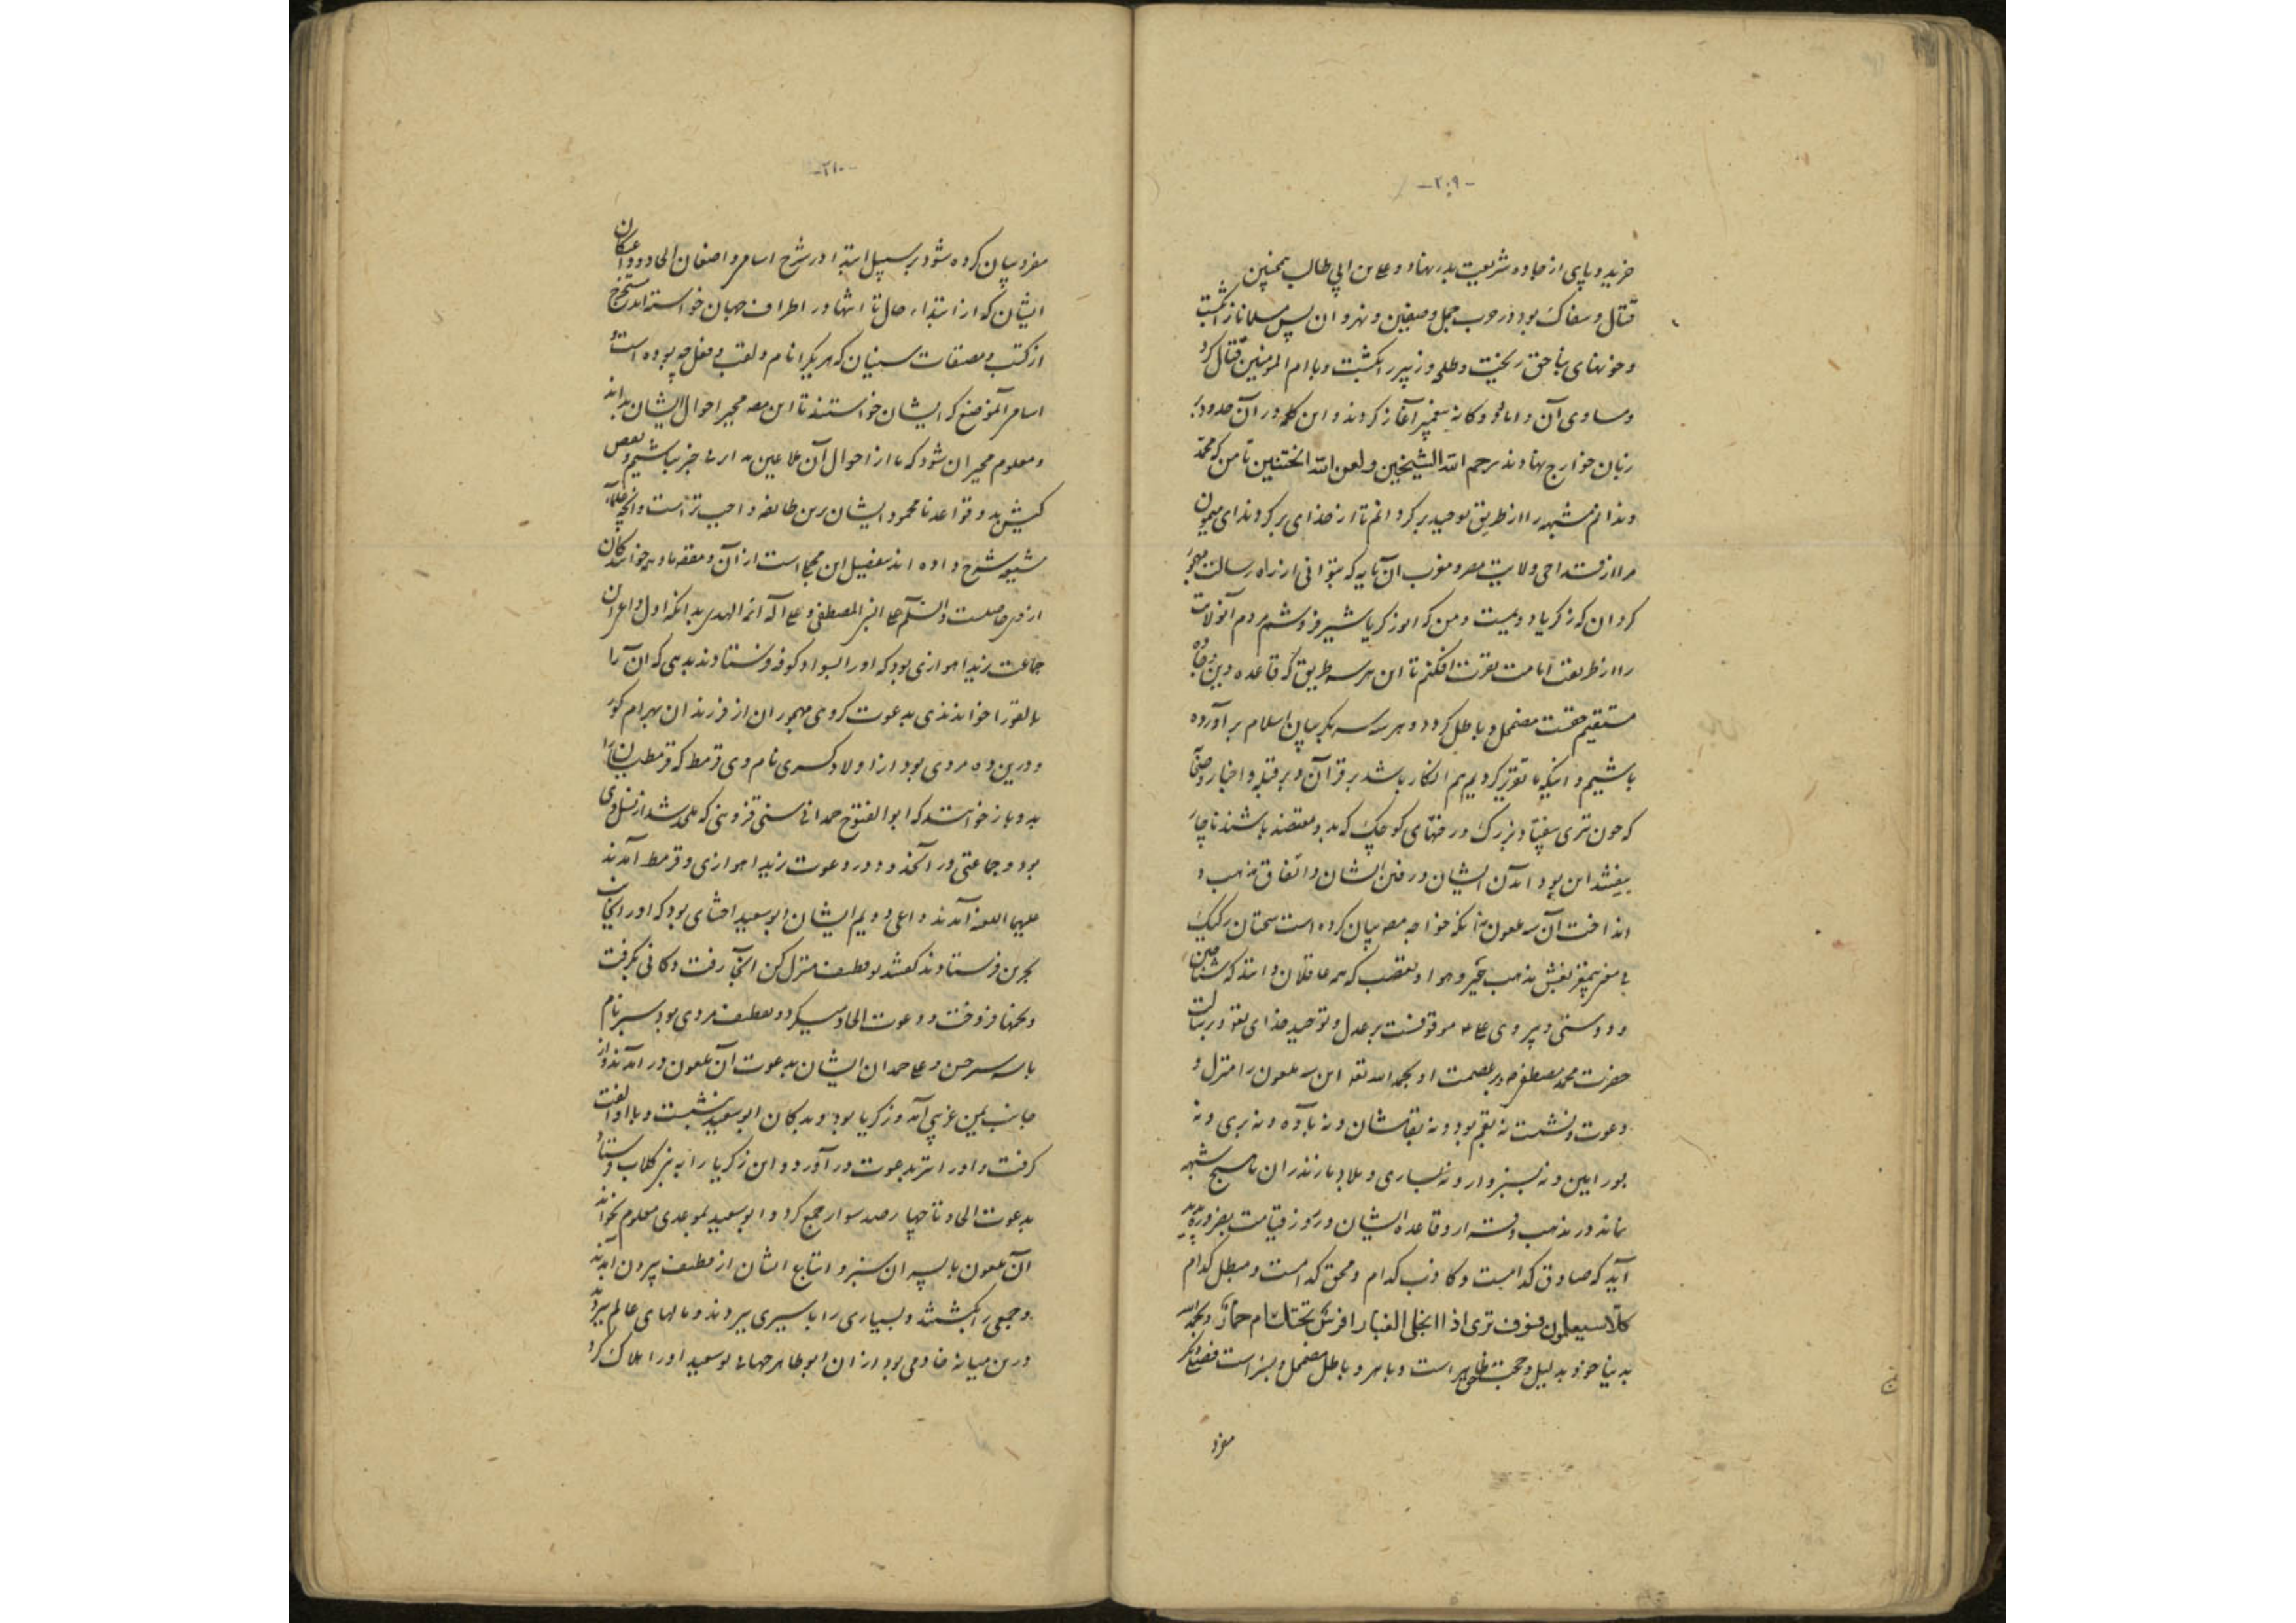 -۲۰۹-
خریده و پای از جاده شریعت بدر نهاد و علی بن ابی طالب همچنین
قتّال و سفاک بود در حرب جمل و صفین و نهروان پس مسلمانان را بکشت
و خونهای بناحق ریخت و طلحه و زبیر را بکشت و با ام المومنین قتال کرد
و مساوی آن دو امام و دوگانه پیغمبر آغاز کردند و این کلمه در آن حدود بر
زبان خوارج نهادند رحم الله الشیخین و لعن الله الختنین تا من که محمّد
دندانم مشبهه را از طریق توحید بر گردانم تا از خدای بر گردند ای میمون
مرا از قداحی ولایت مصر و مغرب آن باید که بتوانی از راه رسالت مهجور
کردن که زکریا دویمیست و من که ابو زکریا شیر فروشم مردم آن ولایت
را از طریقت امامت نفرت افکنم تا این هر سه طریق که قاعده دین و جاده
مستقیم حقست مضمحل و باطل گردد و هر سه سر بگریبان اسلام بر آورده
باشیم و اینکه ما تقریر کردیم هم انکار باشد بر قرآن و بر قبله و اخبار و صحابه
که چون تیری بیفتاد بزرگ درختهای کوچک که بدو معتضد باشند ناچار
بیفتند این بود آمدن ایشان در فتن ایشان و اتفاق مذهب و
انداختن آن سه ملعون نه آنکه خواجه مصنف بیان کرده است سخنان رکیک
بی مغز بتغییر نفس مذهب جبر و هوا و تعصب که همه عاقلان دانند که شناختن
و دوستی و پیروی علی ع موقوفست بر عدل و توحید خدای تعالی و بر رسالت
حضرت محمد مصطفی ص و بر عصمت او بحمد الله تعالی این سه ملعون را منزل و
دعوت و نشست نه بقم بود و نه بقاشان و نه بآوه و نه بری و نه
بورامین و نه بسبزوار و نه بساری و بلاد مازندران تا هیچ شبهه
نماند در مذهب و فسرار و قاعده ایشان و روز قیامت بضروره پدید
آید که صادق کدامست و کاذب کدام و محق کدامست و مبطل کدام
کلا سیعلمون فسوف تری اذا انجلی الغبار افرس تحتک ام حمار و بحمد الله
بدنیا خود بدلیل و حجت حق ظاهر است و باهر و باطل مضمحل و بسزاست فصلی دیگر
مفرد
-۲۱۰-
مفرد بیان کرده شود بر سبیل ابتدا در شرح اسامی و اصفهان الحاد و داعیکان
ایشان که از ابتداء حال تا انتها در اطراف جهان خواسته‌اند مستخرج
از کتب و مصنفات سنیان که هر یکی را نام و لقب و فعل چه بوده است و
اسامی آن موضع که ایشان خواستند تا این مصنف مجبر احوال ایشان بداند
و معلوم مجبران شود که ما از احوال آن ملاعین نه از بی خبر باشیم و نقص
کیش بد و قواعد نامحمود ایشان برین طایفه واجب تر است و آنچه علماء
شیعه شرح داده‌اند بتفصیل این مجملست از آن و مقصود ما دعوی خوانندگان
از وی حاصلست و السّلام علی النبی المصطفی و علی آله ائمة الهدی بدانکه اول داعی آن
جماعت زید اهوازی بود که او را بسواد کوفه فرستادند بدهی که آن را
بالقورا خواندندی بدعوت گروهی مهجوران از فرزندان بهرام گور
و درین ده مردی بود از اولاد کسری نام وی قرمط که قرمطیان را
بدو باز خوانند که ابو الفتوح حمدانی سنی قزوینی که ملحد شد از نسل وی
بود و جماعتی در آنحدود در دعوت زید اهوازی و قرمط آمدند
علیهما اللعنه آمدند و داعی دویم ایشان ابو سعید احشای بود که او را بجانب
بحرین فرستادند گفتند بقطیف منزل کن آنجا رفت و دکانی بگرفت
و تخمها فروخت و دعوت الحاد میکرد و بقطیف مردی بود سبر نام
با سه پسر حسن و علی و حمدان ایشان بدعوت آن ملعون در آمدند و از
جانب یمن غریبی آمد و زکریا بود و بدکان ابو سعید بنشست و با او الفت
گرفت و او را نیز بدعوت در آورد و این زکریا را به بنی کلاب فرستاد
بدعوت الحاد تا چهار صد سوار جمع کرد و ابو سعید بموعدی معلوم بخواند
آن ملعون با پسران سنبر و اتباع ایشان از قطیف بیرون آمدند
و جمعی را بکشتند و بسیاری را باسیری ببردند و مالهای عالم ببردند
درین میانه خادمی بود از آن ابو طاهر جهانی بو سعید او را هلاک کرد